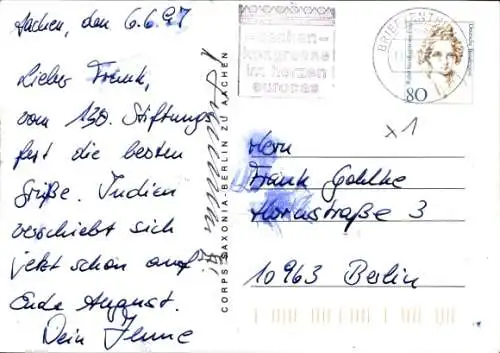 Aachen, den 6.6.97
Lieber Frank,
vom 130. Stiftungs
fest die besten
Grüße. Indien
verschiebt sich
jetzt schon auf
Ende August.
Dein
CORPS SAXONIA-BERLIN ZU AACHEN
aachen-
kongresse
im herzen
europas
BRIEFZENTRUM
80
Deutsche Bundespost
x1
Herrn
Frank Gohlke
Hornstraße 3
10963 Berlin